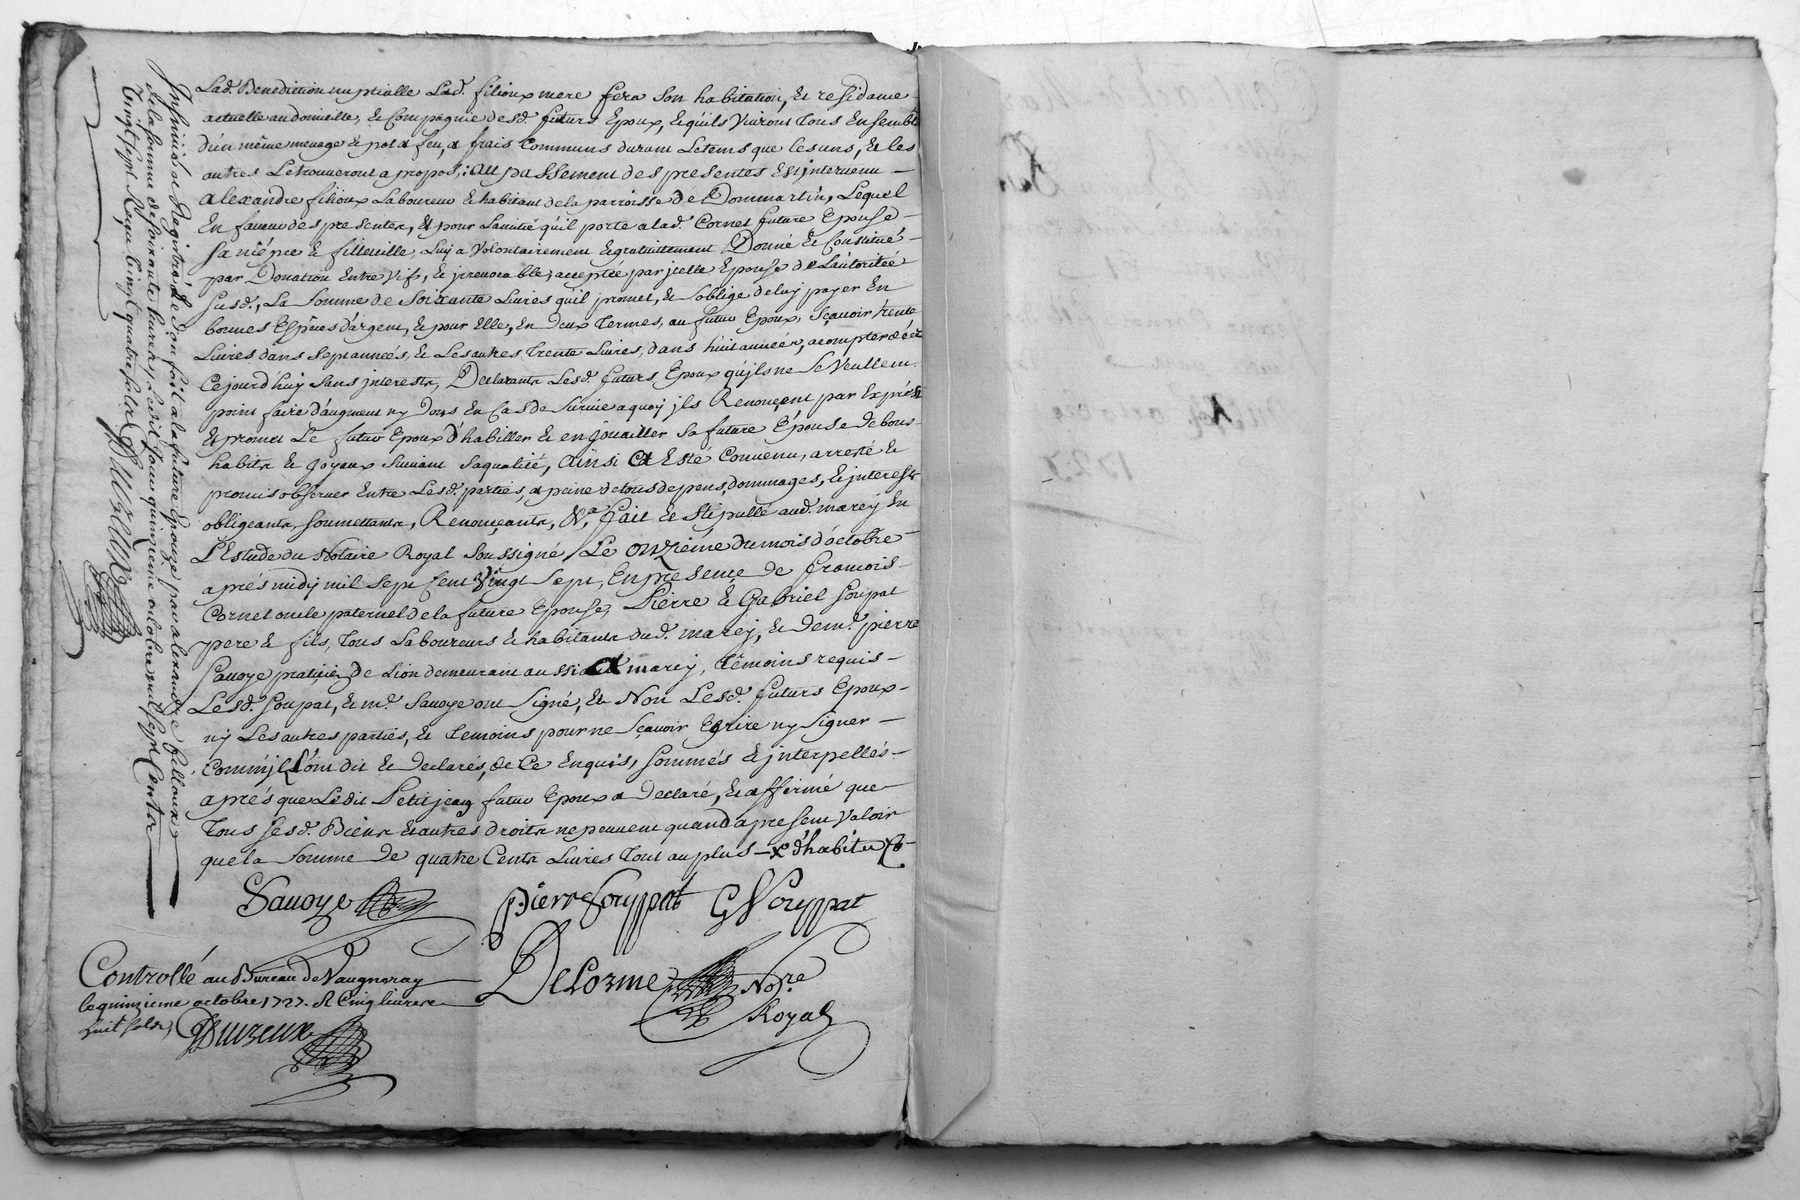 Lad. Benediction nuptialle Lad. filioux mere fera son habitation, et residance
actuelle au domicille, et Compagnie desd. futurs Epoux, et quils Vivront Tous Ensemble
d'un même menage et pot et feu, a frais Communs durant Letems que les uns, et les
autres Letrouveront a propos, : Au passement des presentes Est intervenu
alexandre filioux Laboureur et habitant de la parroisse de Dommartin, Lequel
En faveur des presentes, et pour Lamitié qu'il porte a lad. Cornet future Epouse
sa niépce et fillieulle, Luy a Volontairement et gratuittement Donné et Constitué
par Donation Entre Vifs, et jrrevocable, acceptée par jcelle Epouse de L'autoritée
susd., La somme de soixante Livres qu'il promet, et s'oblige de luy payer En
bonnes Espèces d'argent, et pour Elle, En Deux Termes, au futur Epoux, sçavoir trente
Livres dans sept années, et Les autres Trente Livres, dans huit années, a compter de
Cejourd'huy sans interests, Declarants Lesd. futurs Epoux qu'jls ne se Veullent
point faire d'augment ny Dons En Cas de survie a quoy jls Renonçent par Exprés
Et promet Le futur Epoux d'habiller et enjouailler sa future Epouse De bons
habits et joyaux suivant sa qualité, Ainsi a Esté Convenu, arresté et
promis observer Entre Lesd. parties, a peine de tous depens, dommages, et interests
obligeants, soumettants, Renonçants, &a. fait et stipullé aud. marcy En
L'Estude du Notaire Royal soussigné Le onziéme du mois d'octobre
aprés midy mil sept Cent Vingt sept, En presençe de francois
Cornet oncle paternel de la future Epouse, Pierre et Gabriel soupat
pere et fils, Tous Laboureurs et habitants dud. marcy, et Demr. pierre
Savoye praticien de Lion demeurant aussi a marcy, Témoins requis
Lesd. soupat, et mr. Savoye ont signé, et Non Lesd. futurs Epoux
ny Les autres parties, et Temoins pour ne sçavoir Ecrire ny signer
Comm'jls L'ont dit et Declarés, de Ce Enquis, sommés et jnterpellés
aprés que Ledit Petitjean futur Epoux a Declaré, et affirmé que
Tous sesd. Biens et autres droits ne peuvent quand a present Valoir
que la somme de quatre Cents Livres Tout au plus - x d'habits
Savoye
pierre Souppat G Souppat
DeLorme Nore.
Royal
Controllé au Bureau de Vaugneray
le quinzieme octobre 1727. R Cinq livres
huit sols,
Insinué et Registré le Don fait a la future Epouze par alexandre filloux
de la somme de soixante livres, ledit jour quinzieme octobre mil sept Cents
Vingt sept Reçu Cinq quatre sols